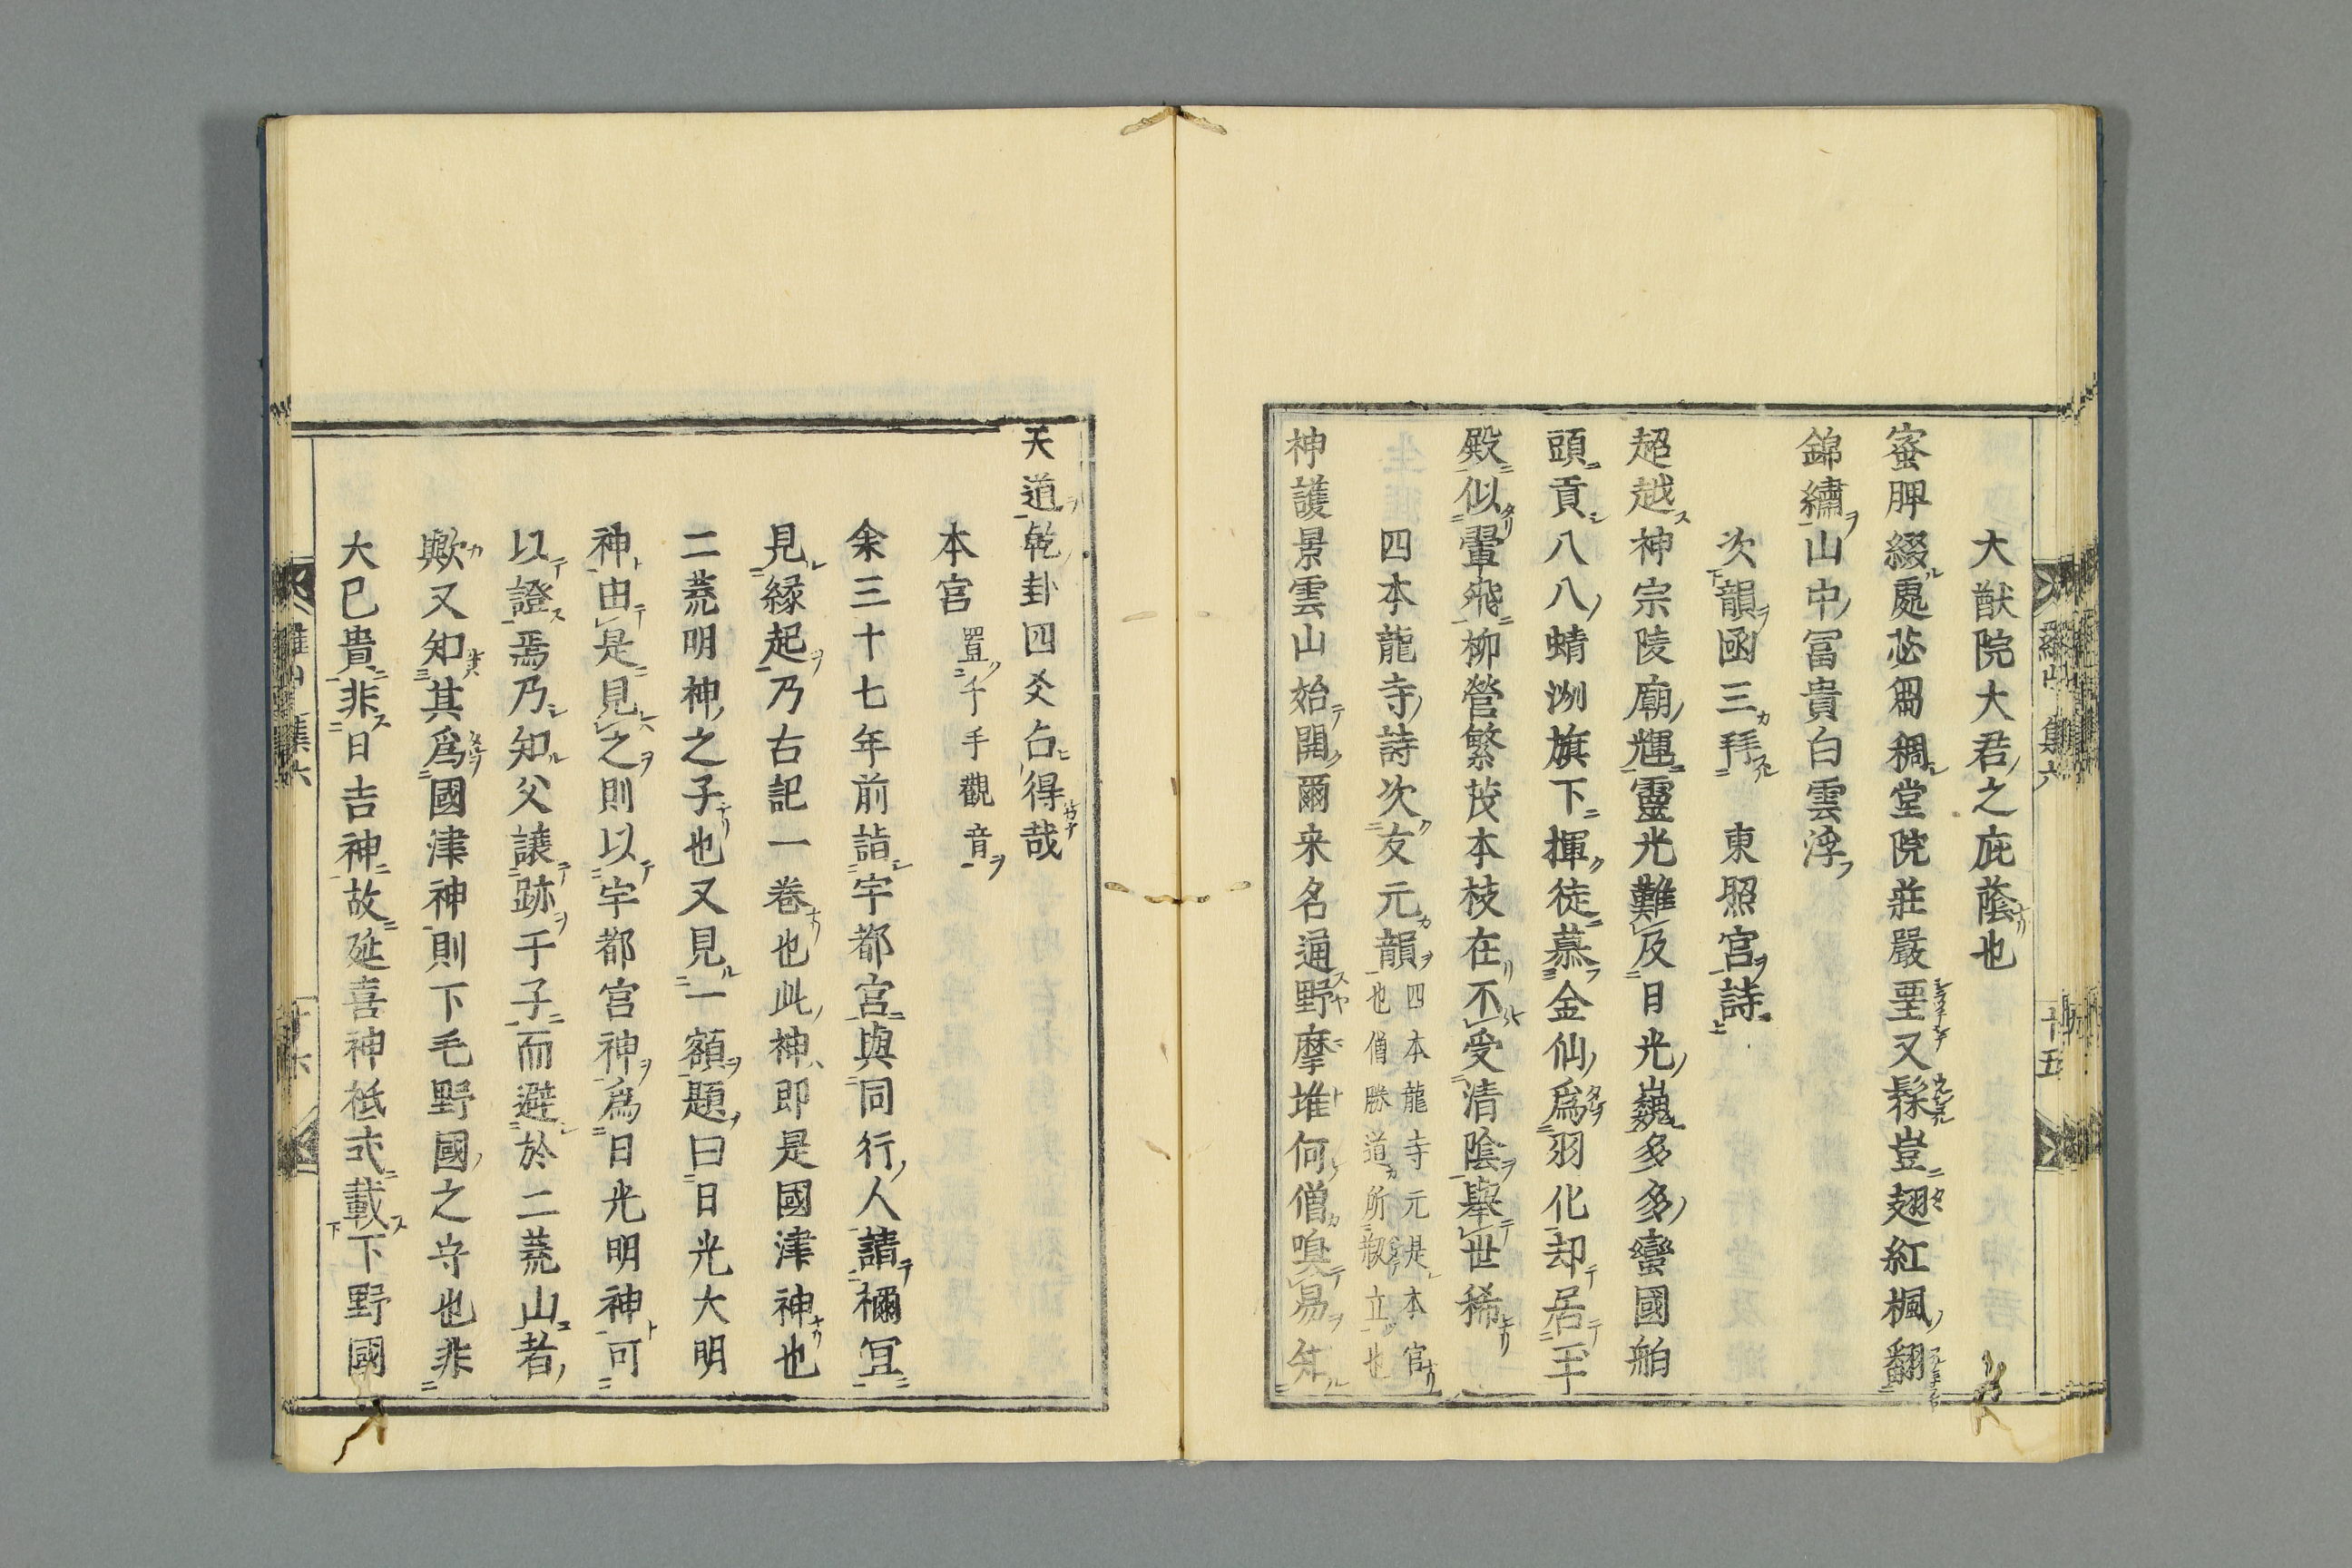 大猷院大君之庇蔭也
蜜脾綴處苾芻稠堂院莊嚴堊又髹豈翅紅楓翻
錦繡山中冨貴白雲浮
次韻函三拜東照宮詩
超越神宗陵廟輝靈光難及日光巍多多蠻國舶
頭貢八八蜻洲旗下揮徒慕金仙爲羽化却居玉
殿似翬飛柳營繁茂本枝在不受清陰舉世稀
四本龍寺詩次友元韻四本龍寺元是本宮
也僧勝道所剏立也
神護景雲山始開爾来名通野摩堆何僧嗅易知
天道乾卦四爻占得哉
本宮置千手觀音
余三十七年前詣宇都宮與同行人請禰冝
見緣起乃右記一卷也此神即是國津神也
二荒明神之子也又見一額題曰日光大明
神由是見之則以宇都宮神爲日光明神可
以證焉乃知父讓跡于子而避於二荒山者
歟又知其爲國津神則下毛野國之守也非
大已貴非日吉神故延喜神祇式載下野國
羅山 集六
十五
集六